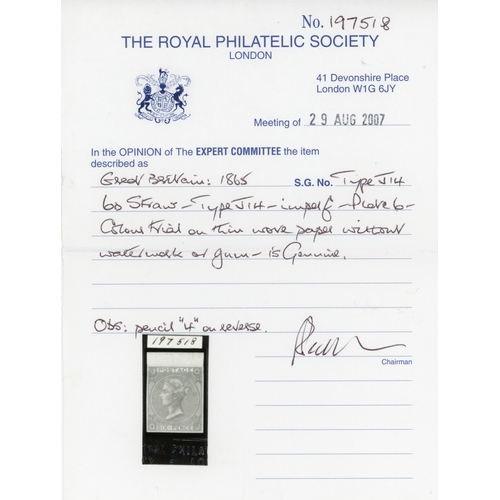 No. 197518
THE ROYAL PHILATELIC SOCIETY
LONDON
41 Devonshire Place
London W1G 6JY
Meeting of 29 AUG 2007
In the OPINION of The EXPERT COMMITTEE the item
described as
Great Britain: 1865 S.G. No. Type J14
6d Straw - Type J14 - imperf - Plate 6 -
Colour trial on thin wove paper without
watermark or gum - is Genuine.
Obs: pencil "4" on reverse.
Chairman
197518
POSTAGE
SIX PENCE